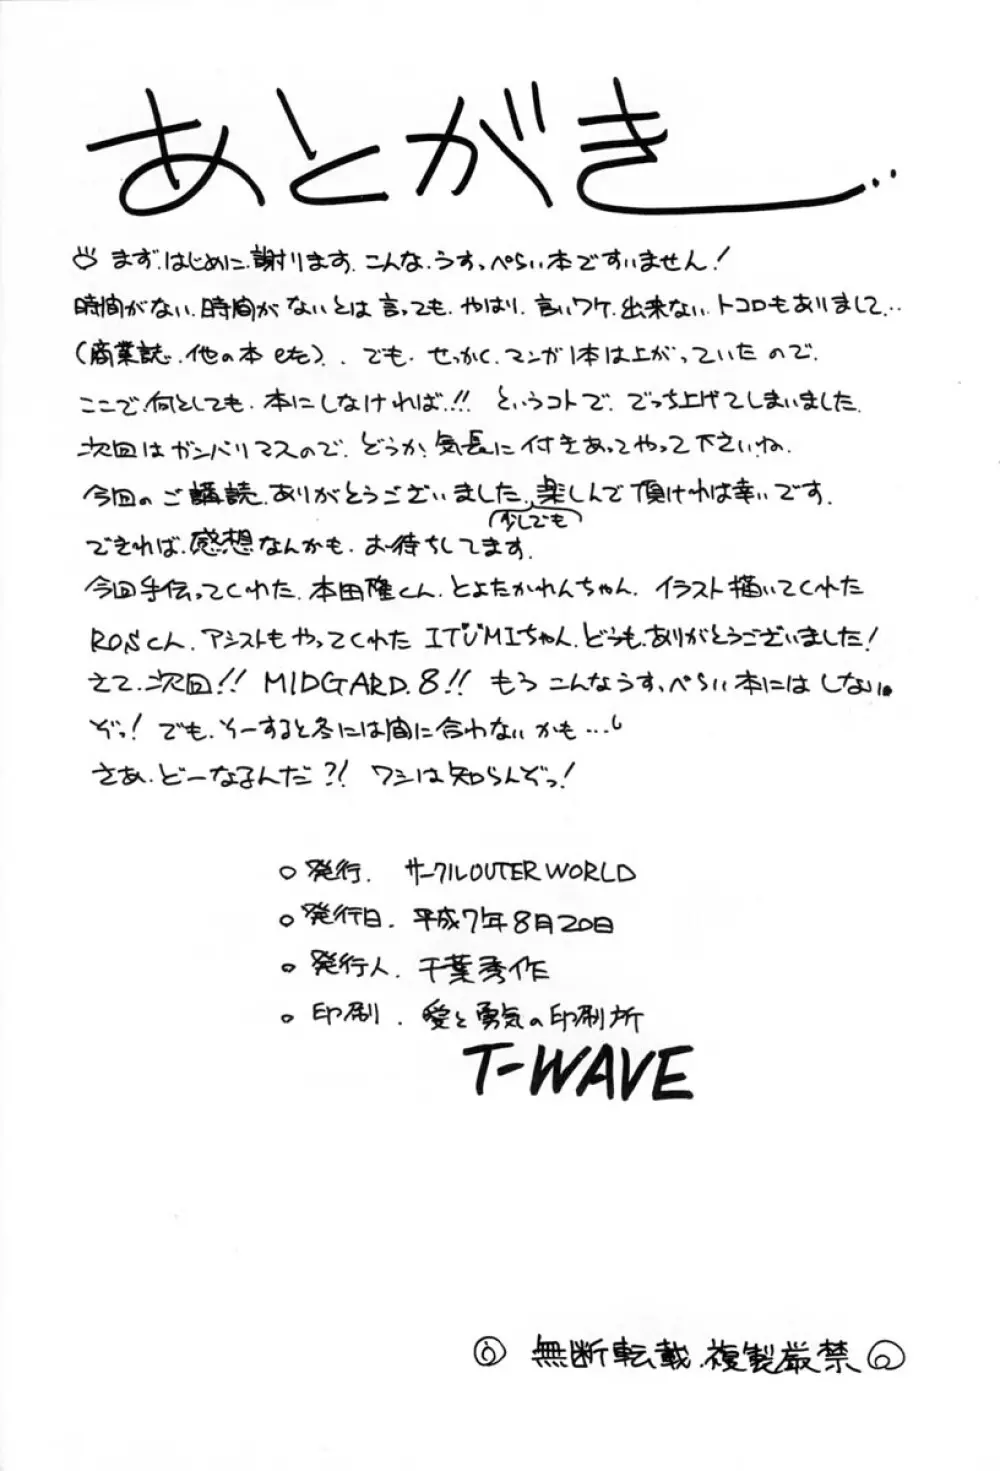 あとがき…
まず、はじめに、謝ります。こんな、うすっぺらい本ですいません!
時間がない、時間がないとは言っても、やはり、言いワケ、出来ない、トコロもありまして…
(商業誌、他の本 etc)、でも、せっかく、マンガ1本は上がっていたので、
ここで、何としても、本にしなければ…!! というコトで、でっち上げてしまいました。
次回はガンバリマスので、どうか、気長に付きあってやって下さいね。
今回のご購読、ありがとうございました。楽しんで頂ければ幸いです。
(少しでも)
できれば、感想なんかも、お待ちしてます。
今回手伝ってくれた、本田隆くん、とよたかれんちゃん、イラスト描いてくれた
RONくん、アシストもやってくれたITUMIちゃん、どうも、ありがとうございました!
さて、次回!! MIDGARD.8!! もう こんなうすっぺらい本にはしない
ぞっ! でも、そーすると冬には間に合わないかも…
さあ、どーなるんだ?! ワシは知らんぞっ!
○発行. サークルOUTER WORLD
○発行日. 平成7年8月20日
○発行人. 千葉秀作
○印刷. 愛と勇気の印刷所
T-WAVE
無断転載、複製厳禁